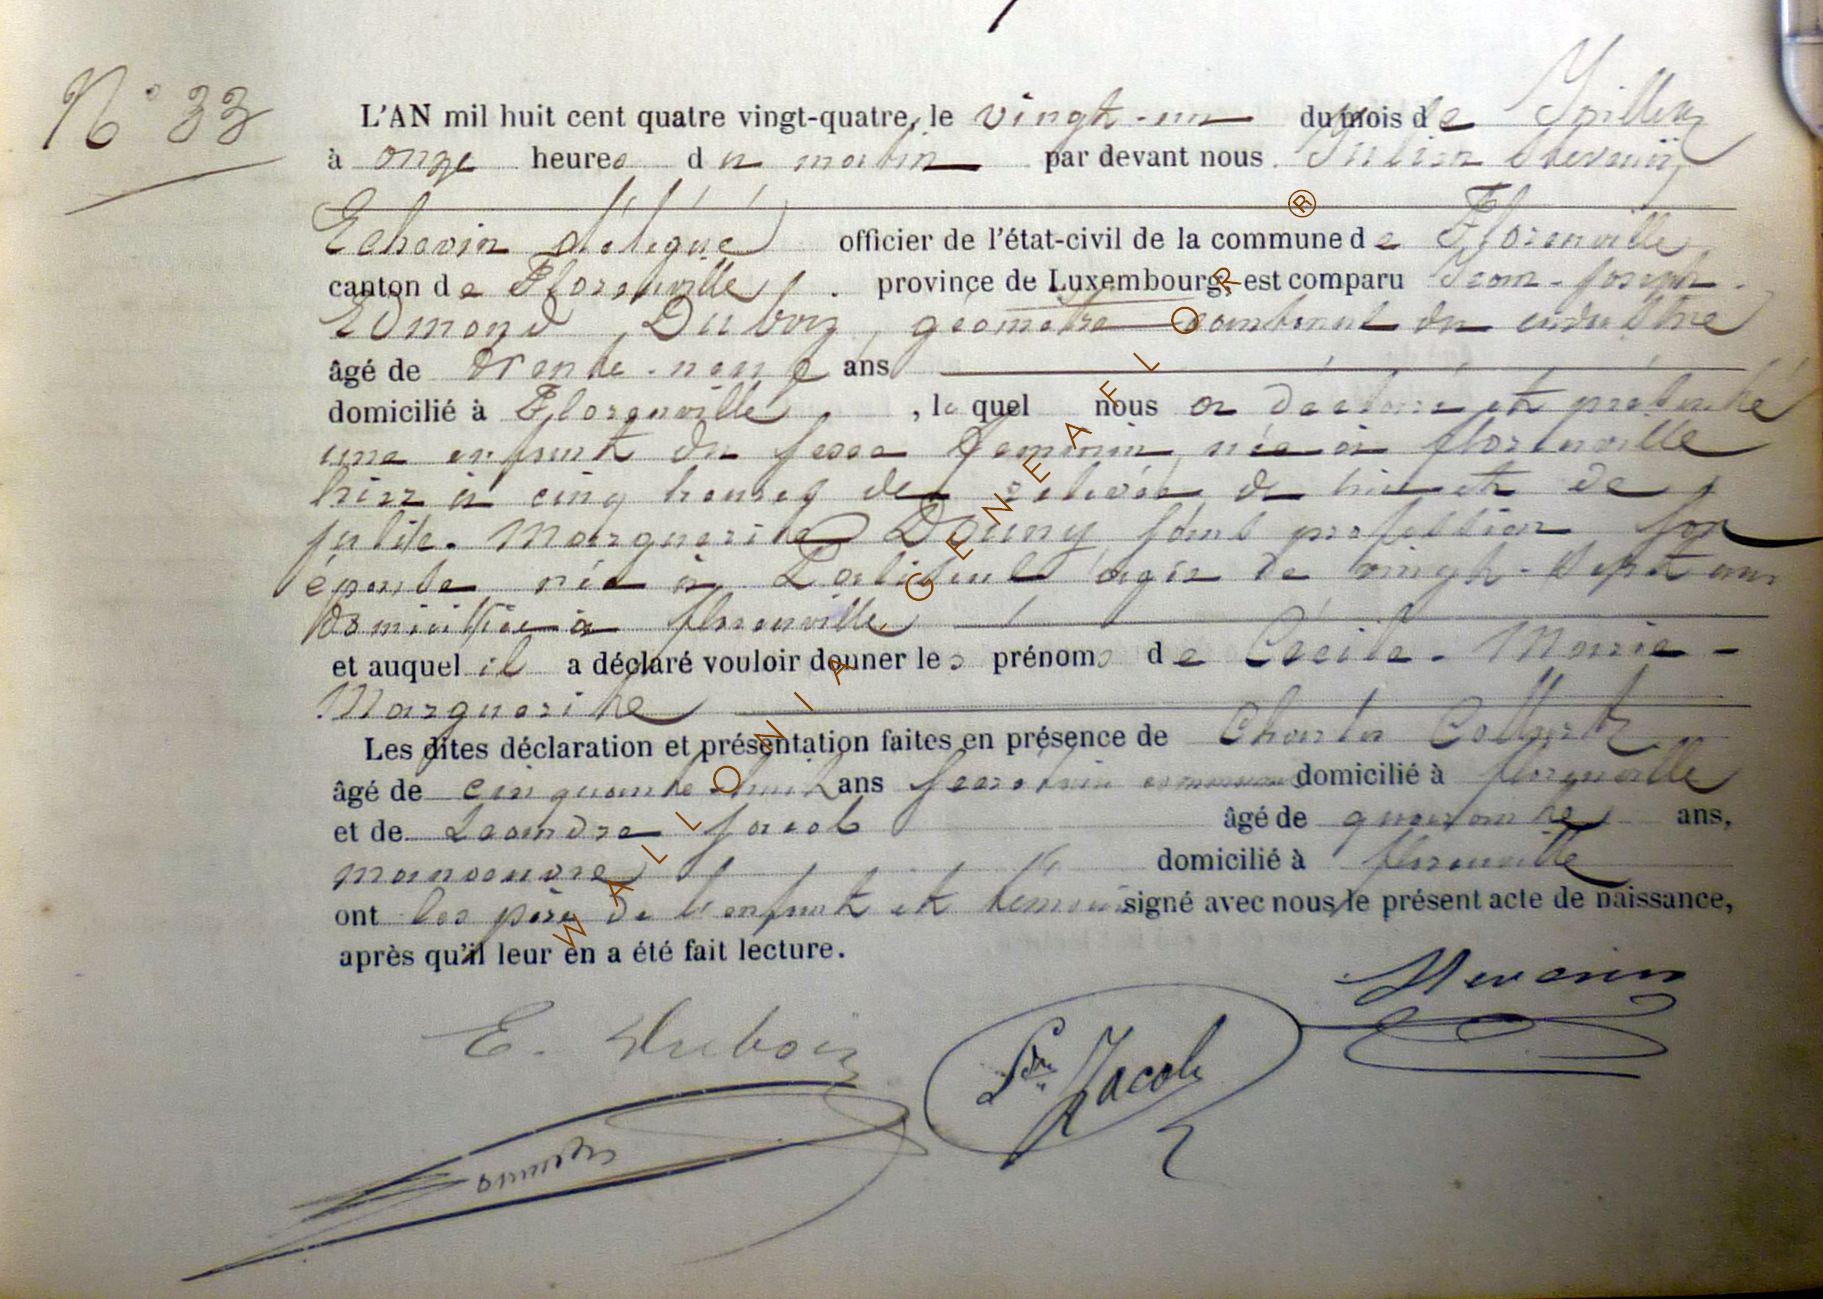 N° 33
L'AN mil huit cent quatre vingt-quatre, le vingt-un du mois de Juillet
à onze heures du matin par devant nous Julien
Echevin délégué officier de l'état-civil de la commune de Florenville
canton de Florenville, province de Luxembourg, est comparu Jean-Joseph-
Edmond Dubois, géomètre du cadastre
âgé de trente-neuf ans
domicilié à Florenville, lequel nous a déclaré et présenté
une enfant du sexe féminin, née à florenville
hier à cinq heures de relevée de lui et de
Marguerite Douny sans profession son
épouse née à Paliseul âgée de vingt-sept ans
domiciliée à florenville
et auquel il a déclaré vouloir donner les prénoms de Cécile-Marie-
Marguerite
Les dites déclaration et présentation faites en présence de Charles
âgé de cinquante-huit ans domicilié à florenville
et de Léandre Jacob âgé de quarante ans,
manoeuvre domicilié à florenville
ont les père de l'enfant et témoins signé avec nous le présent acte de naissance,
après qu'il leur en a été fait lecture.
E. Dubois
Jacob
WALLONIA GENEA FLOR ®